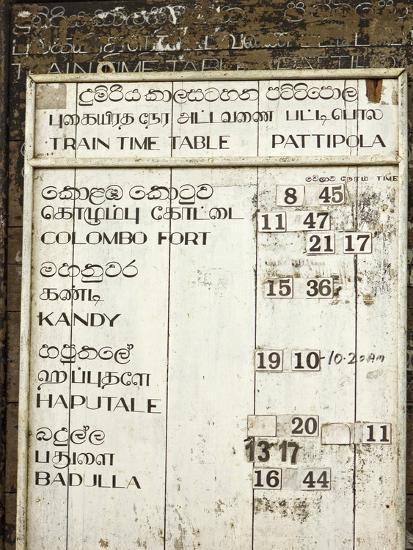 TRAIN TIME TABLE
දුම්රිය කාලසටහන පට්ටිපොල
புகையிரத நேர அட்டவணை பட்டிபொல
TRAIN TIME TABLE PATTIPOLA
වේලාව நேரம் TIME
කොළඹ කොටුව 8 45
கொழும்பு கோட்டை 11 47
COLOMBO FORT 21 17
මහනුවර
கண்டி 15 36
KANDY
හපුතලේ 19 10 10.20AM
ஹப்புதளே
HAPUTALE
බදුල්ල 20 11
பதுளை 13 17
BADULLA 16 44